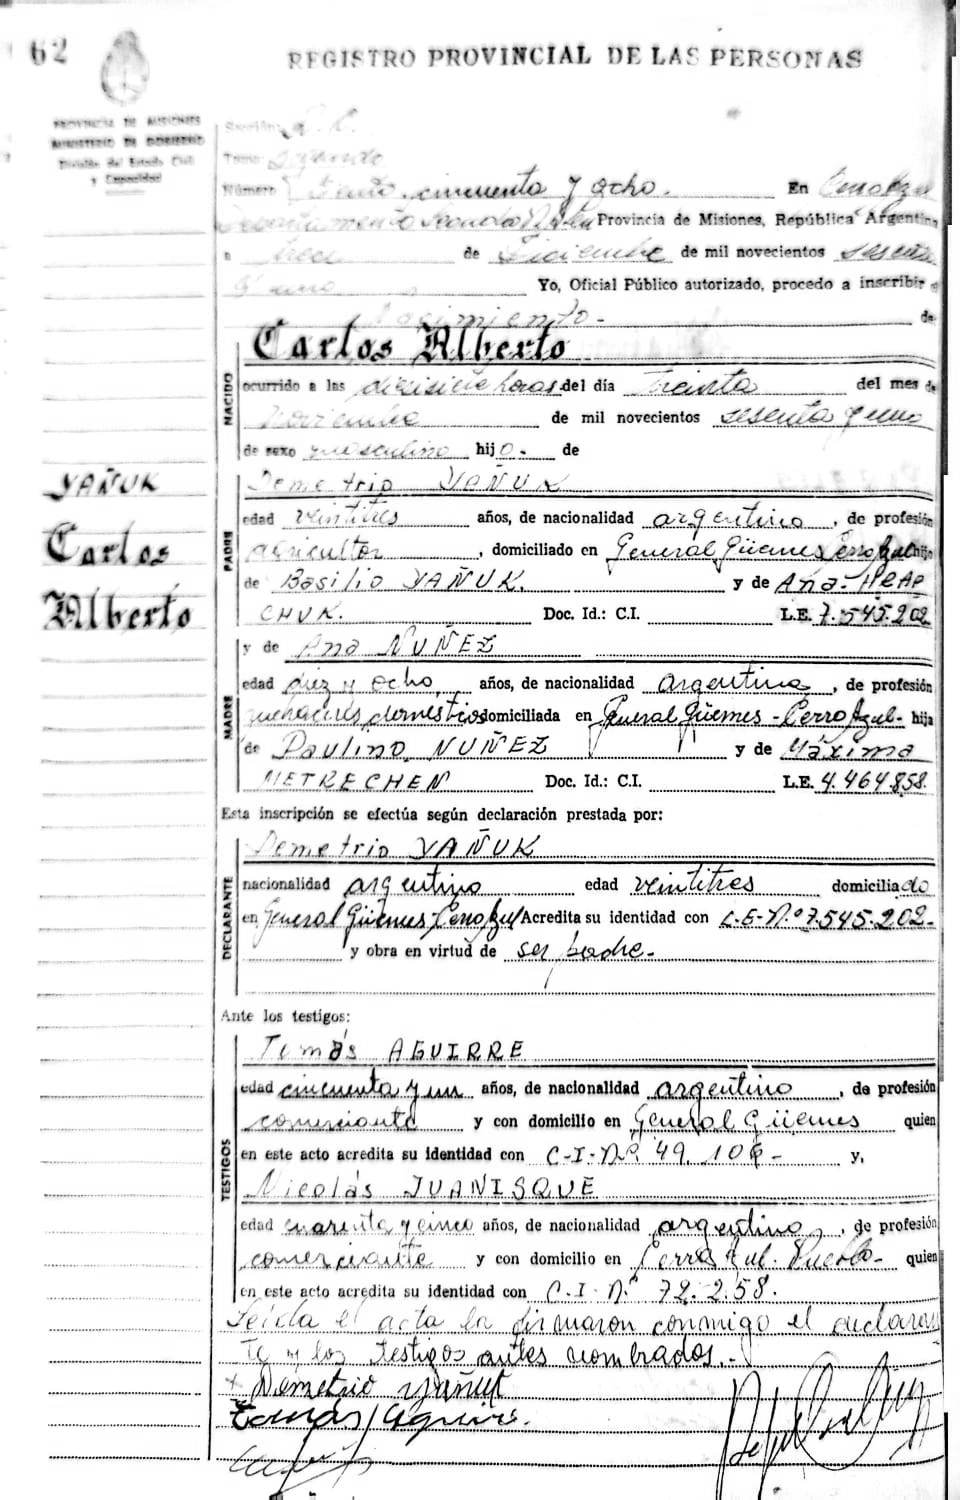 62
REGISTRO PROVINCIAL DE LAS PERSONAS
PROVINCIA DE MISIONES
MINISTERIO DE GOBIERNO
División del Estado Civil
y Capacidad
Sección
Tomo Segundo
Número ciento cincuenta y ocho. En Cerro Azul
Departamento Leandro N. Alem Provincia de Misiones, República Argentina
a trece de Diciembre de mil novecientos sesenta
y uno Yo, Oficial Público autorizado, procedo a inscribir el
nacimiento.- de
Carlos Alberto
NACIDO
ocurrido a las diecisiete horas del día treinta del mes de
noviembre de mil novecientos sesenta y uno
de sexo masculino hijo.- de
YAÑUK
Carlos
Alberto
PADRE
Demetrio YAÑUK
edad veintitres años, de nacionalidad argentino, de profesión
agricultor, domiciliado en General Güemes Cerro Azul hijo
de Basilio YAÑUK. y de Ana HRAP
CHUK. Doc. Id.: C.I. L.E. 7.545.202
y de Ana NUÑEZ
MADRE
edad diez y ocho años, de nacionalidad argentina, de profesión
quehaceres domesticos domiciliada en General Güemes - Cerro Azul - hija
de Paulino NUÑEZ y de Máxima
METRECHEN Doc. Id.: C.I. L.E. 4.464.858.
Esta inscripción se efectúa según declaración prestada por:
DECLARANTE
Demetrio YAÑUK
nacionalidad argentino edad veintitres domiciliado
en General Güemes Cerro Azul Acredita su identidad con L.E.Nº 7.545.202.-
y obra en virtud de ser padre.-
Ante los testigos:
TESTIGOS
Tomás AGUIRRE
edad cincuenta y un años, de nacionalidad argentino, de profesión
comerciante y con domicilio en General Güemes quien
en este acto acredita su identidad con C.I.Nº 49.106- y,
Nicolás IUANISQUE
edad cuarenta y cinco años, de nacionalidad argentino, de profesión
comerciante y con domicilio en Cerro Azul. Pueblo- quien
en este acto acredita su identidad con C.I.Nº 72.258.
Leida el acta la firmaron conmigo el declaran
te y los testigos antes nombrados.-
Demetrio Yañuk
Tomás Aguirre.